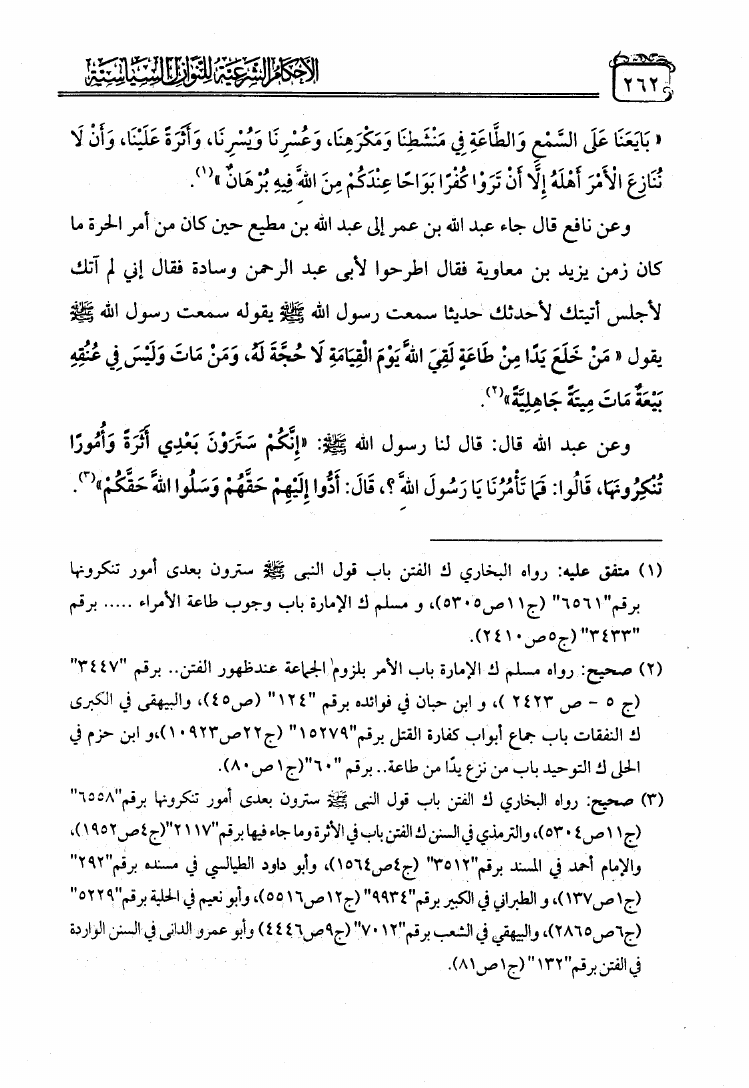 ٢٦٢
الأحكام الشرعية للنوازل السياسية
« بَايَعَنَا عَلَى السَّمْعِ وَالطَّاعَةِ فِي مَنْشَطِنَا وَمَكْرَهِنَا، وَعُسْرِنَا وَيُسْرِنَا، وَأَثَرَةً عَلَيْنَا، وَأَنْ لَا
نُنَازِعَ الْأَمْرَ أَهْلَهُ إِلَّا أَنْ تَرَوْا كُفْرًا بَوَاحًا عِنْدَكُمْ مِنَ اللهِ فِيهِ بُرْهَانٌ »(١).
وعن نافع قال جاء عبد الله بن عمر إلى عبد الله بن مطيع حين كان من أمر الحرة ما
كان زمن يزيد بن معاوية فقال اطرحوا لأبى عبد الرحمن وسادة فقال إني لم آتك
لأجلس أتيتك لأحدثك حديثا سمعت رسول الله ﷺ يقوله سمعت رسول الله ﷺ
يقول « مَنْ خَلَعَ يَدًا مِنْ طَاعَةٍ لَقِيَ اللهَ يَوْمَ الْقِيَامَةِ لَا حُجَّةَ لَهُ، وَمَنْ مَاتَ وَلَيْسَ فِي عُنُقِهِ
بَيْعَةٌ مَاتَ مِيتَةً جَاهِلِيَّةً»(٢).
وعن عبد الله قال: قال لنا رسول الله ﷺ: «إِنَّكُمْ سَتَرَوْنَ بَعْدِي أَثَرَةً وَأُمُورًا
تُنْكِرُونَهَا، قَالُوا: فَمَا تَأْمُرُنَا يَا رَسُولَ اللهِ؟، قَالَ: أَدُّوا إِلَيْهِمْ حَقَّهُمْ وَسَلُوا اللهَ حَقَّكُمْ»(٣).
(١) متفق عليه: رواه البخاري ك الفتن باب قول النبى ﷺ سترون بعدى أمور تنكرونها
برقم"٦٥٦١" (ج١١ص٥٣٠٥)، و مسلم ك الإمارة باب وجوب طاعة الأمراء ..... برقم
"٣٤٣٣" (ج٥ص٢٤١٠).
(٢) صحيح: رواه مسلم ك الإمارة باب الأمر بلزوم الجماعة عندظهور الفتن.. برقم "٣٤٤٧"
(ج ٥ - ص ٢٤٢٣ )، و ابن حبان في فوائده برقم "١٢٤" (ص٤٥)، والبيهقى في الكبرى
ك النفقات باب جماع أبواب كفارة القتل برقم"١٥٢٧٩" (ج٢٢ص١٠٩٢٣)،و ابن حزم في
الحلى ك التوحيد باب من نزع يدًا من طاعة.. برقم "٦٠"(ج١ص٨٠).
(٣) صحيح: رواه البخاري ك الفتن باب قول النبى ﷺ سترون بعدى أمور تنكرونها برقم"٦٥٥٨"
(ج١١ص٥٣٠٤)، والترمذي في السنن ك الفتن باب في الأثرة وما جاء فيها برقم"٢١١٧"(ج٤ص١٩٥٢)،
والإمام أحمد في المسند برقم"٣٥١٢" (ج٤ص١٥٦٤)، وأبو داود الطيالسي في مسنده برقم"٢٩٢"
(ج١ص١٣٧)، و الطبراني في الكبير برقم"٩٩٣٤" (ج١٢ص٥٥١٦)، وأبو نعيم في الحلية برقم"٥٢٢٩"
(ج٦ص٢٨٦٥)، والبيهقي في الشعب برقم"٧٠١٢" (ج٩ص٤٤٤٦) وأبو عمرو الدانى في السنن الواردة
في الفتن برقم"١٣٢" (ج١ص٨١).